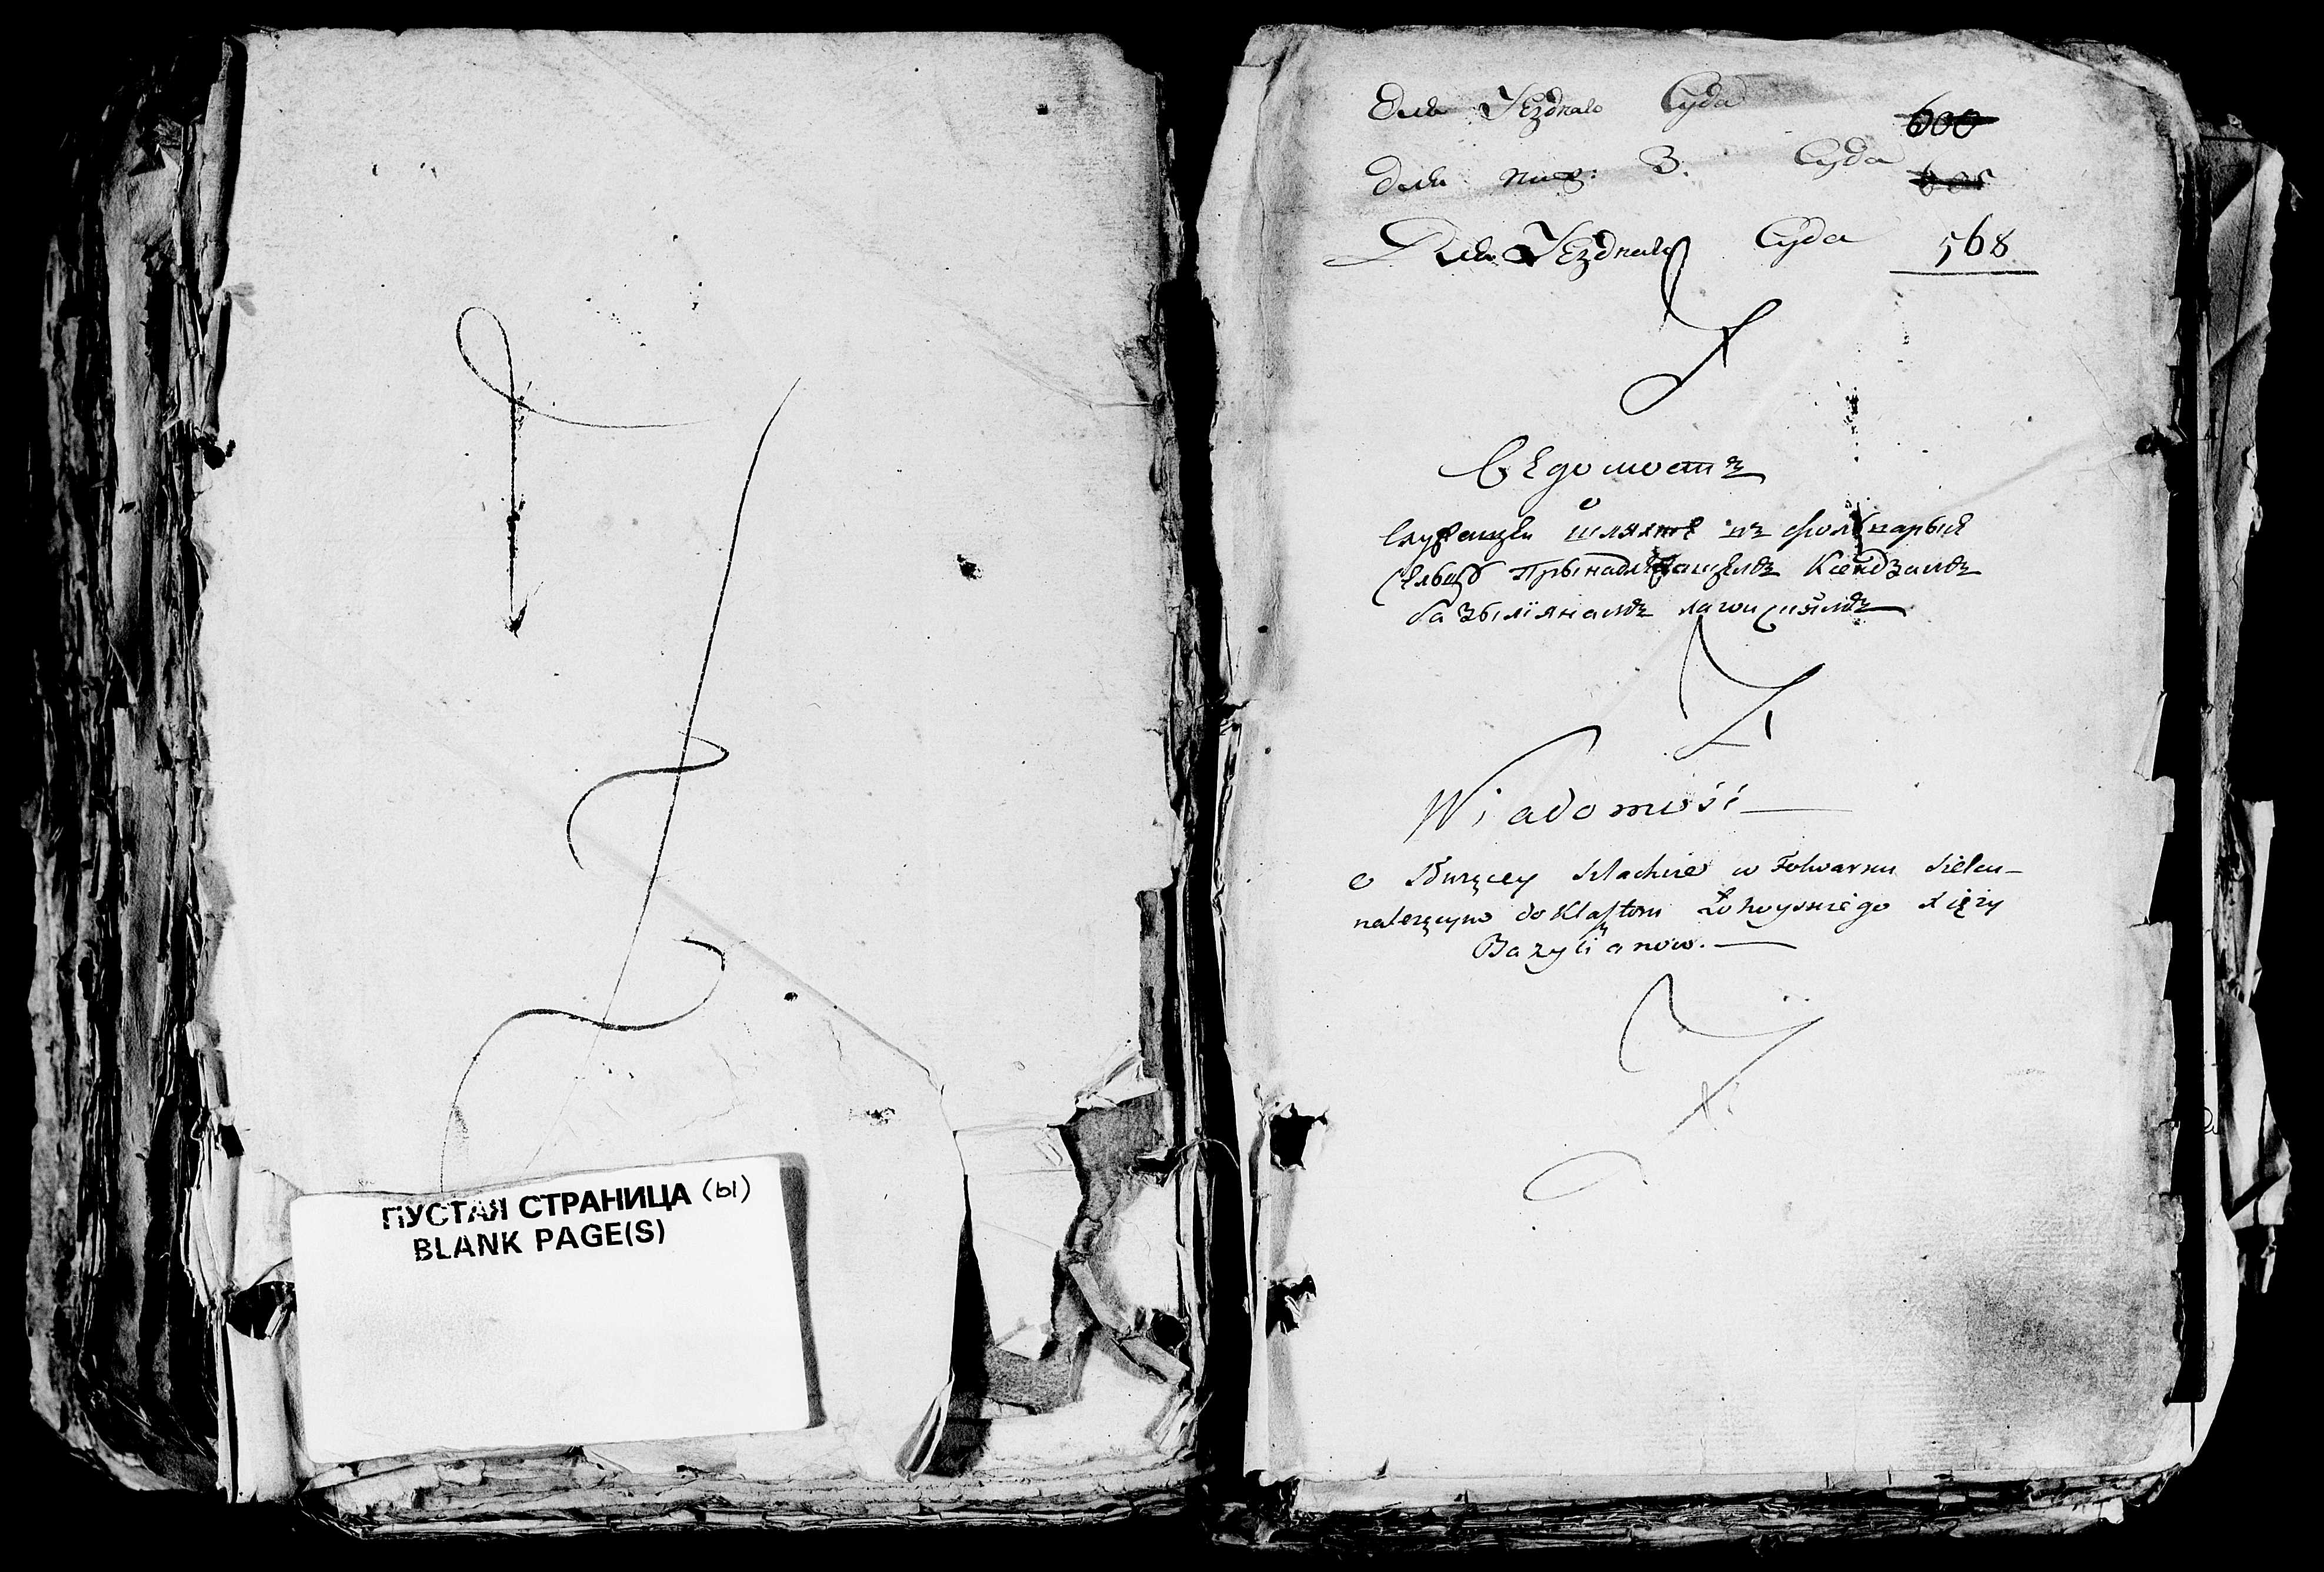 ПУСТАЯ СТРАНИЦА (ы)
BLANK PAGE(S)
для Уезднаго Суда 600
для ниж: З. Суда
Для Уезднаго Суда 568
Ведомость
о
служащей шляхте въ фолварке
принадлежащемъ Ксендзамъ
базылианамъ
Wiadomość
o służącey szlachcie w Folwarku Sielcu
należącym do Klasztoru Łohoyskiego Xięży
Bazylianow.